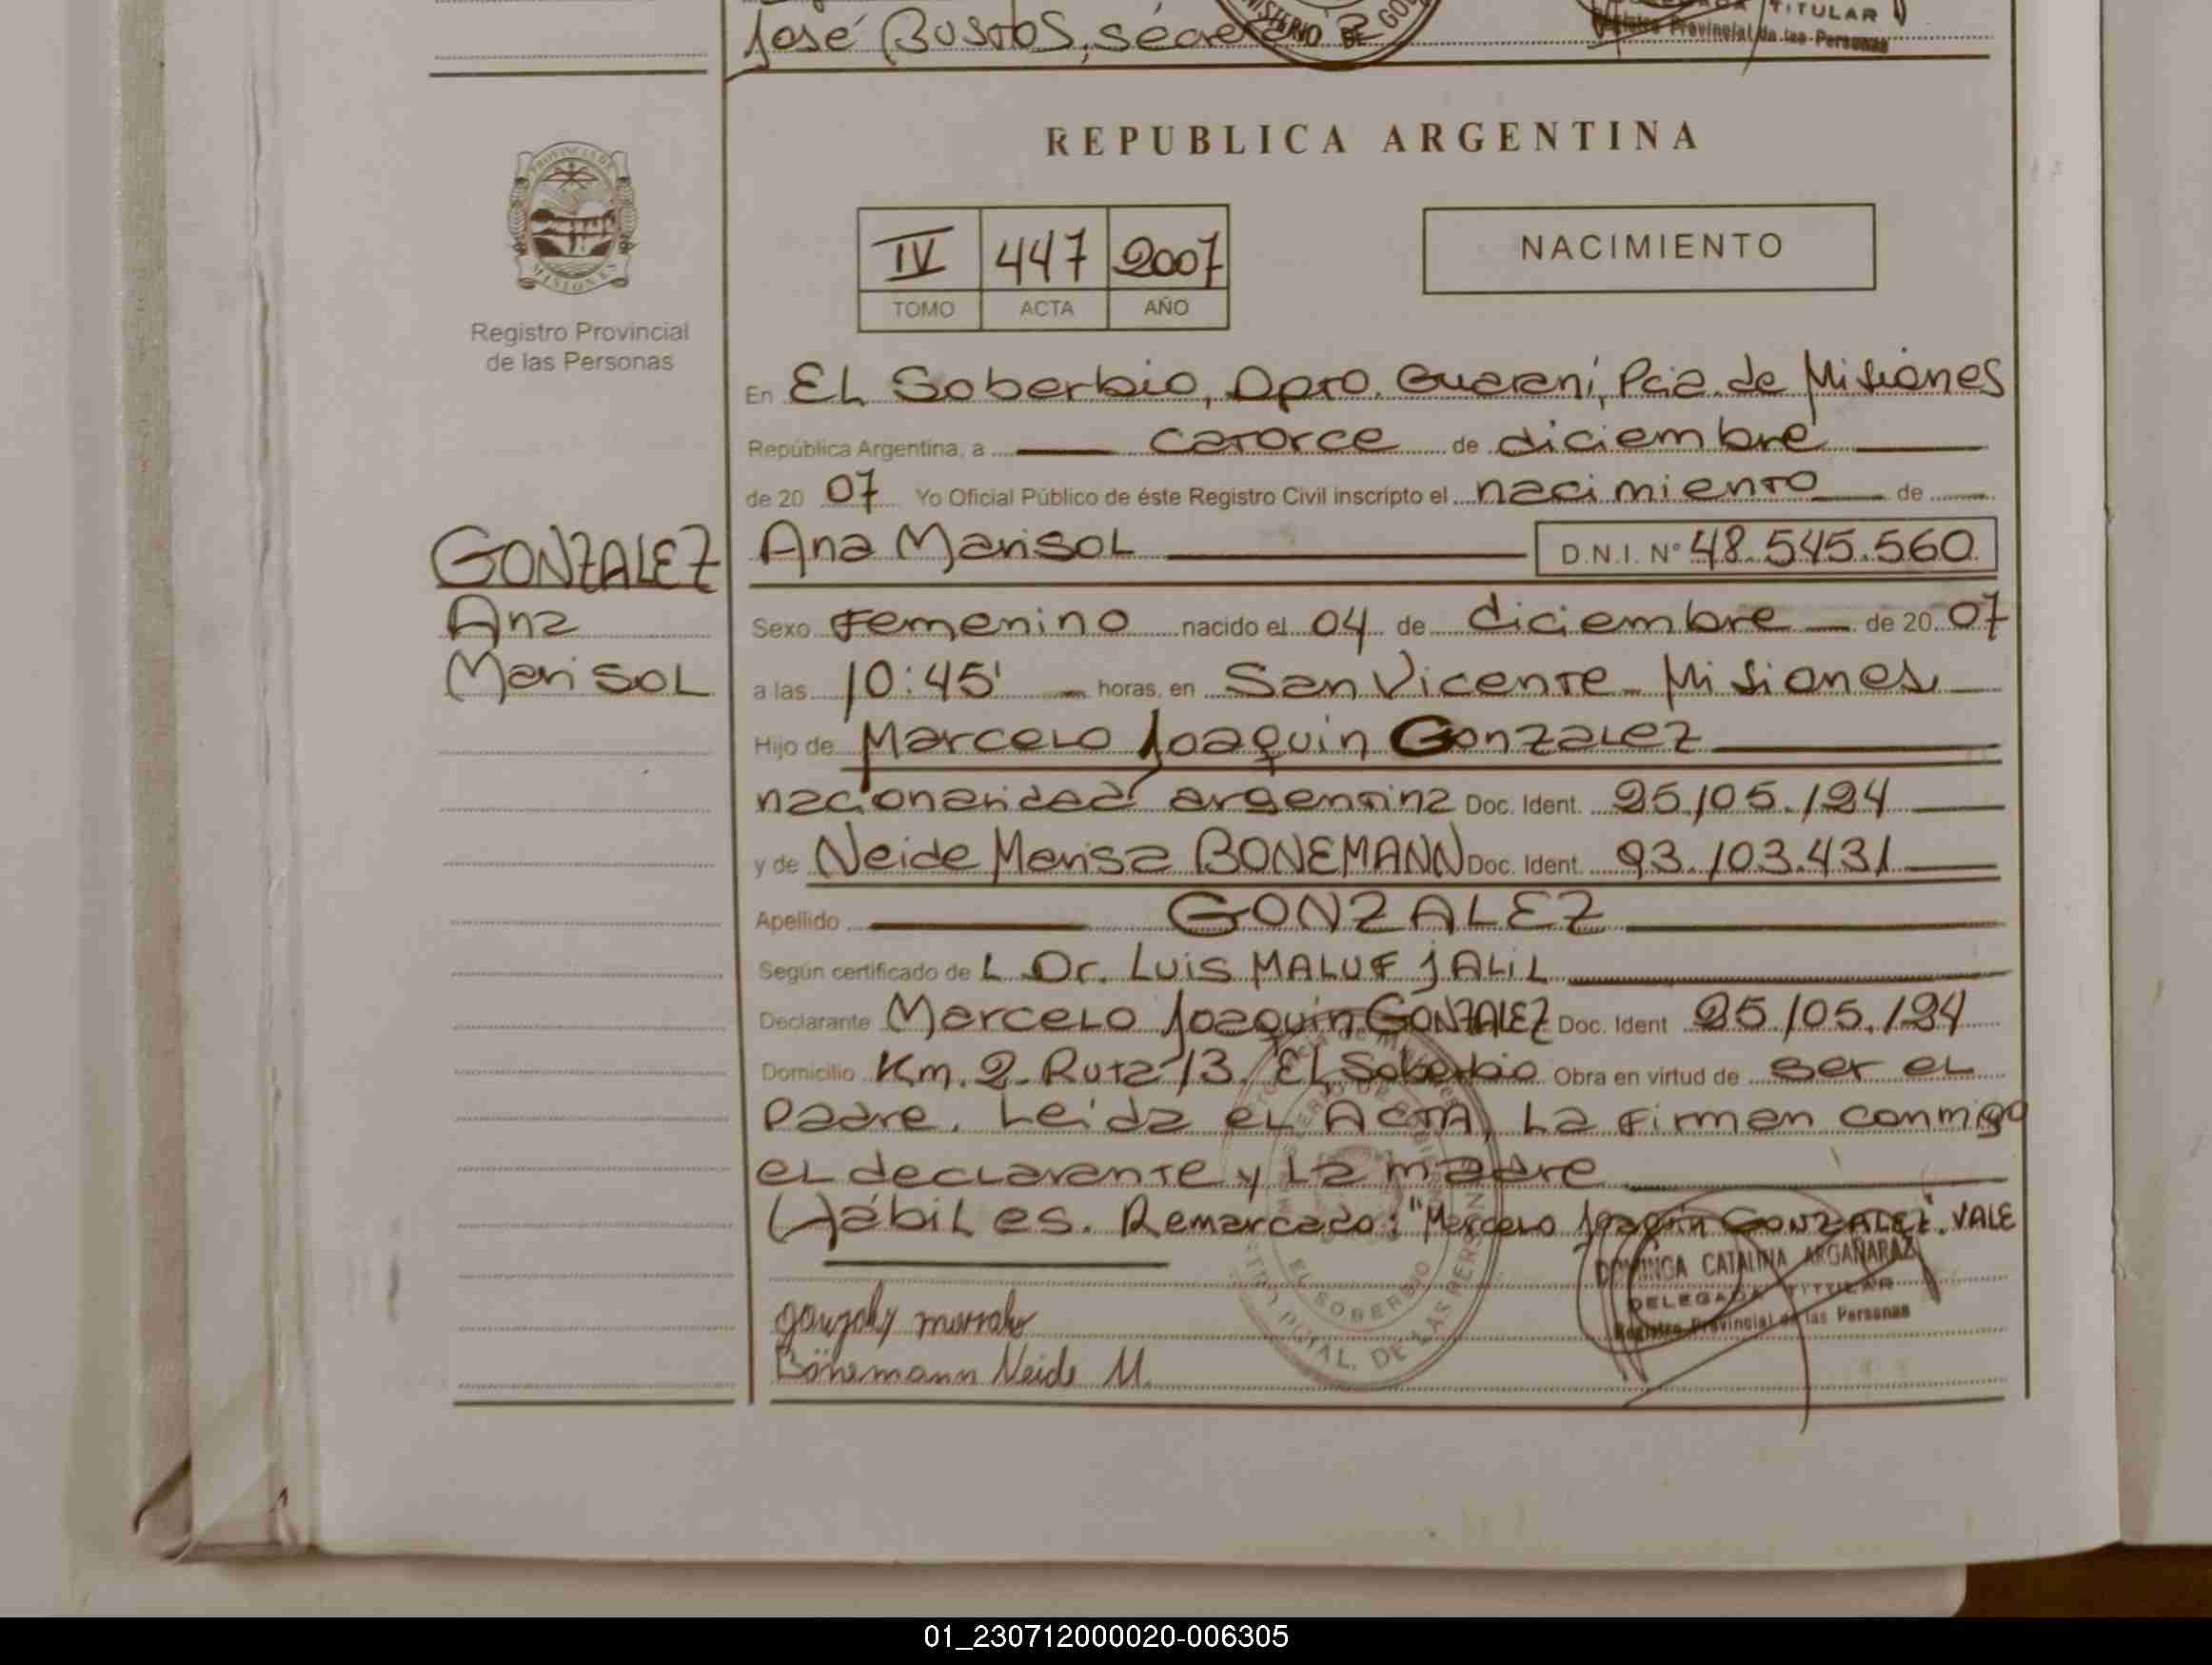 José Bustos, secre
MINISTERIO DE GO
TITULAR
Registro Provincial de las Personas
REPUBLICA ARGENTINA
PROVINCIA DE
MISIONES
Registro Provincial
de las Personas
IV 447 2007
TOMO ACTA AÑO
NACIMIENTO
En EL Soberbio, Dpto. Guaraní, Pcia. de Misiones
República Argentina, a catorce de diciembre
de 20 07 Yo Oficial Público de éste Registro Civil inscripto el nacimiento de
GONZALEZ
Ana
MarisoL
Ana MarisoL D.N.I. Nº 48.545.560
Sexo Femenino nacido el 04 de diciembre de 20 07
a las 10:45' horas, en San Vicente Misiones
Hijo de Marcelo Joaquin Gonzalez
nacionalidad argentina Doc. Ident. 25.105.124
y de Neide Marisa BONEMANN Doc. Ident. 93.103.431
Apellido GONZALEZ
Según certificado de L Dr. Luis MALUF JALIL
Declarante Marcelo Joaquin GONZALEZ Doc. Ident 25.105.124
Domicilio Km. 2 Ruta 13, El Soberbio Obra en virtud de ser el
padre. Leida el ACTA, La Firman conmigo
el declarante y La madre
Hábiles. Remarcado: "Marcelo Joaquin GONZALEZ". VALE
DOMINGA CATALINA ARGAÑARAZ
DELEGADA TITULAR
Registro Provincial de las Personas
EL SOBERBIO
PCIAL. DE LAS PERSONAS
Bönemann Neide M.
01_230712000020-006305